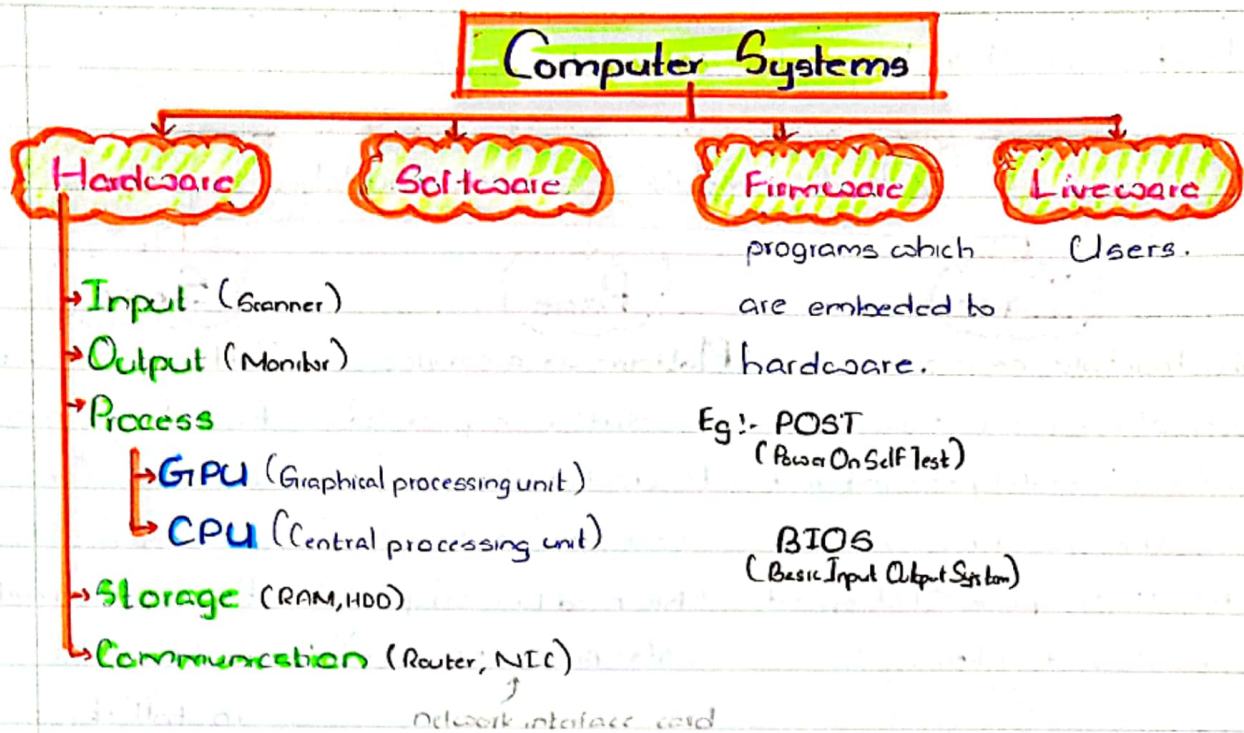 Computer Systems
Hardware
Software
Firmware
Liveware
Input (Scanner)
Output (Monitor)
Process
GPU (Graphical processing unit)
CPU (Central processing unit)
Storage (RAM, HDD)
Communication (Router, NIC)
network interface card
programs which
are embeded to
hardware.
Eg :- POST
(Power On Self Test)
BIOS
(Basic Input Output System)
Users.